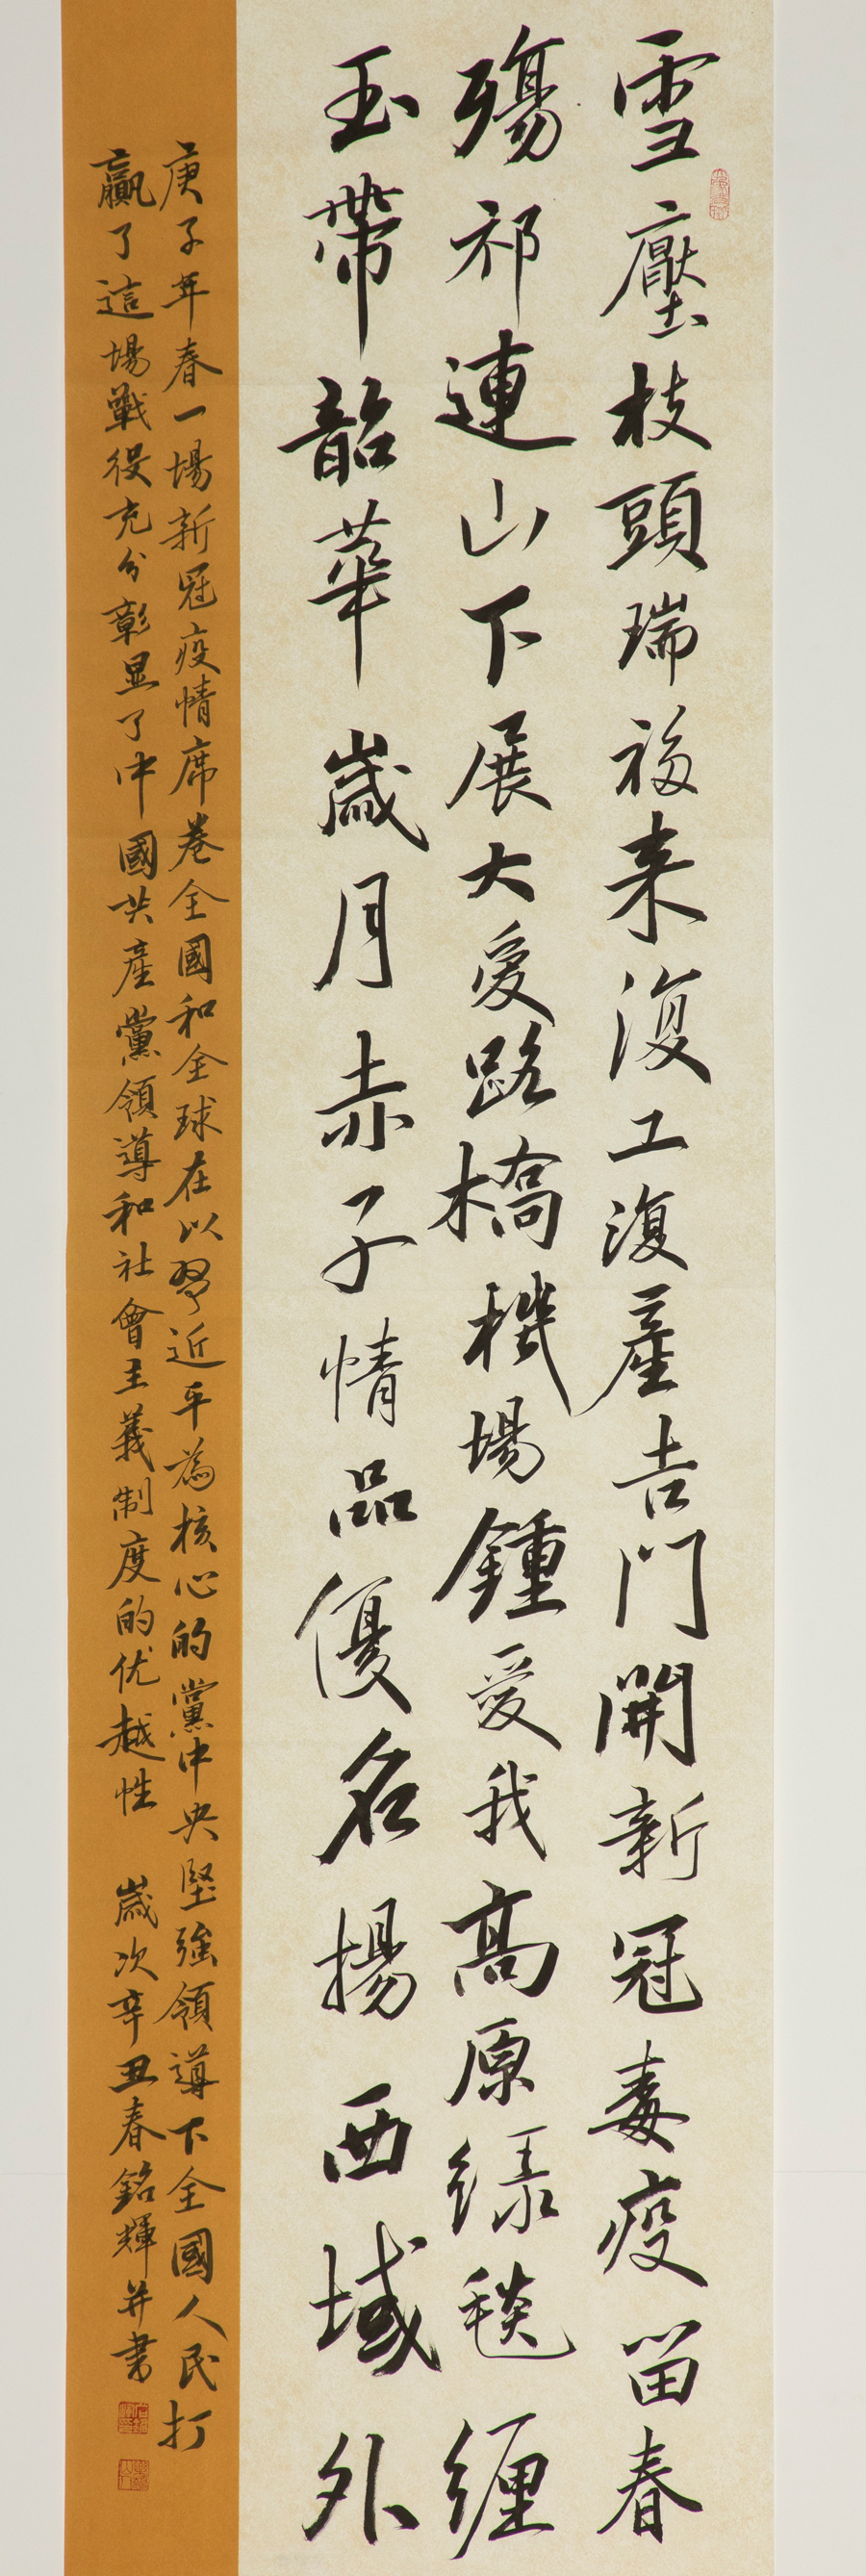 雪壓枝頭瑞福来復工復產吉門開新冠毒疫留春
殤祁連山下展大爱路橋機場鍾爱我高原绿毯缠
玉帶韶華歲月赤子情品優名揚西域外
庚子年春一場新冠疫情席卷全國和全球在以習近平為核心的黨中央堅强領導下全國人民打
贏了這場戰役充分彰显了中國共產黨領導和社會主義制度的优越性 歲次辛丑春銘輝并书